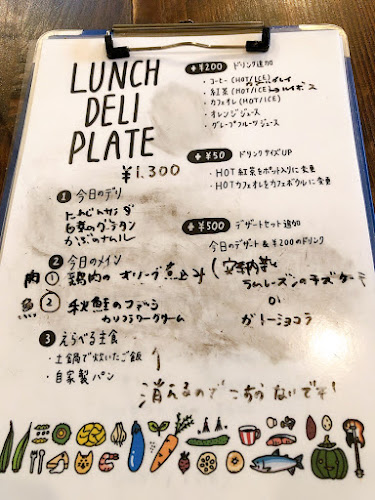 LUNCH
DELI
PLATE
¥1,300
1 今日のデリ
にんじんサラダ
白菜のグラタン
かぶのナムル
2 今日のメイン
肉 ① 鶏肉のオリーブ煮込み
② 秋鮭のフライ
カリフラワークリーム
3 えらべる主食
・土鍋で炊いたご飯
・自家製パン
+¥200 ドリンク追加
・コーヒー (HOT/ICE)
・紅茶 (HOT/ICE) ルイボス
・カフェオレ (HOT/ICE)
・オレンジジュース
・グレープフルーツジュース
+¥50 ドリンクサイズUP
・HOT紅茶をポット入りに変更
・HOTカフェオレをカフェボウルに変更
+¥500 デザートセット追加
今日のデザート & ¥200のドリンク
安納芋と
ラムレーズンのチーズケーキ
or
ガトーショコラ
消えるのでこちらないです!